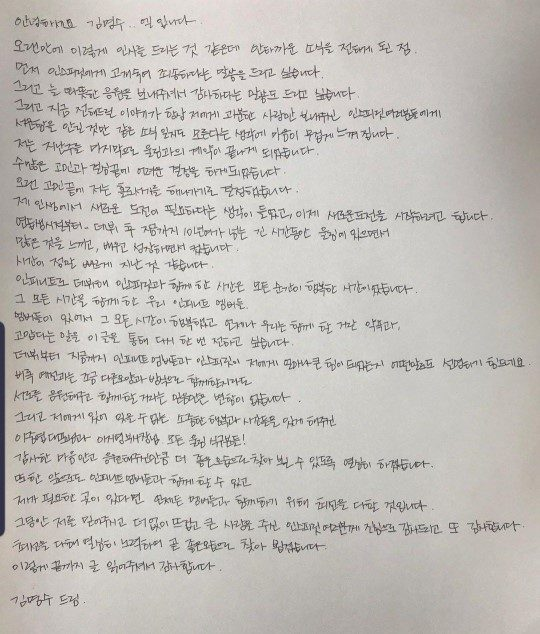 안녕하세요 김명수.. 엘 입니다.
오랜만에 이렇게 인사를 드리는 것 같은데 안타까운 소식을 전하게 된 점.
먼저 인스피릿에게 고개숙여 죄송하다는 말씀을 드리고 싶습니다.
그리고 늘 따뜻한 응원을 보내주셔서 감사하다는 말씀도 드리고 싶습니다.
그리고 지금 전해드릴 이야기가 항상 저에게 과분한 사랑만 보내주신 인스피릿여러분들에게
서운함을 안긴 것만 같은 소식일지도 모른다는 생각에 마음이 무겁게 느껴집니다.
저는 지난주를 마지막으로 울림과의 계약이 끝나게 되었습니다.
수많은 고민과 결정끝에 어려운 결정을 하게되었습니다.
오랜 고민끝에 저는 홀로서기를 해나가기로 결정하였습니다.
제 인생에서 새로운 도전이 필요하다는 생각이 들었고, 이제 새로운도전을 시작하려고 합니다.
연습생시절부터.. 데뷔 후 지금까지 10년여가 넘는 긴 시간동안 울림에 있으면서
많은 것을 느끼고, 배우고 성장하면서 컸습니다.
시간이 정말 빠르게 지난 것 같습니다.
인피니트로 데뷔해 인스피릿과 함께 한 시간은 모든 순간이 행복한 시간이었습니다.
그 모든 시간을 함께 한 우리 인피니트 멤버들.
멤버들이 있어서 그 모든 시간이 행복했고 언제나 우리는 함께 할 거란 약속과,
고맙다는 말을 이 글을 통해 다시 한 번 전하고 싶습니다.
데뷔부터 지금까지 인피니트 멤버들과 인스피릿이 저에게 얼마나 큰 힘이 되었는지 어떤말로도 설명하기 힘드네요.
비록 예전과는 조금 다른모양과 방식으로 함께할지라도
서로를 응원해주고 함께할 거라는 믿음만은 변함이 없습니다.
그리고 저에게 있어 잊을 수 없는 소중한 행복과 시간들을 있게 해주신
이중엽대표님과 이기영본부장님 모든 울림 식구분들!
감사한 마음안고 응원해주신만큼 더 좋은모습으로 찾아 뵐 수 있도록 열심히 하겠습니다.
또한 앞으로도 인피니트멤버들과 함께 할 수 있고
제가 필요한 곳이 있다면 언제든 멤버들과 함께하기 위해 최선을 다할 것입니다.
그동안 저를 믿어주시고 더없이 뜨겁고 큰 사랑을 주신 인스피릿 여러분께 진심으로 감사드리고 또 감사합니다.
최선을 다해 열심히 노력하여 곧 좋은모습으로 찾아 뵙겠습니다.
이렇게 끝까지 글 읽어주셔서 감사합니다.
김명수 드림.